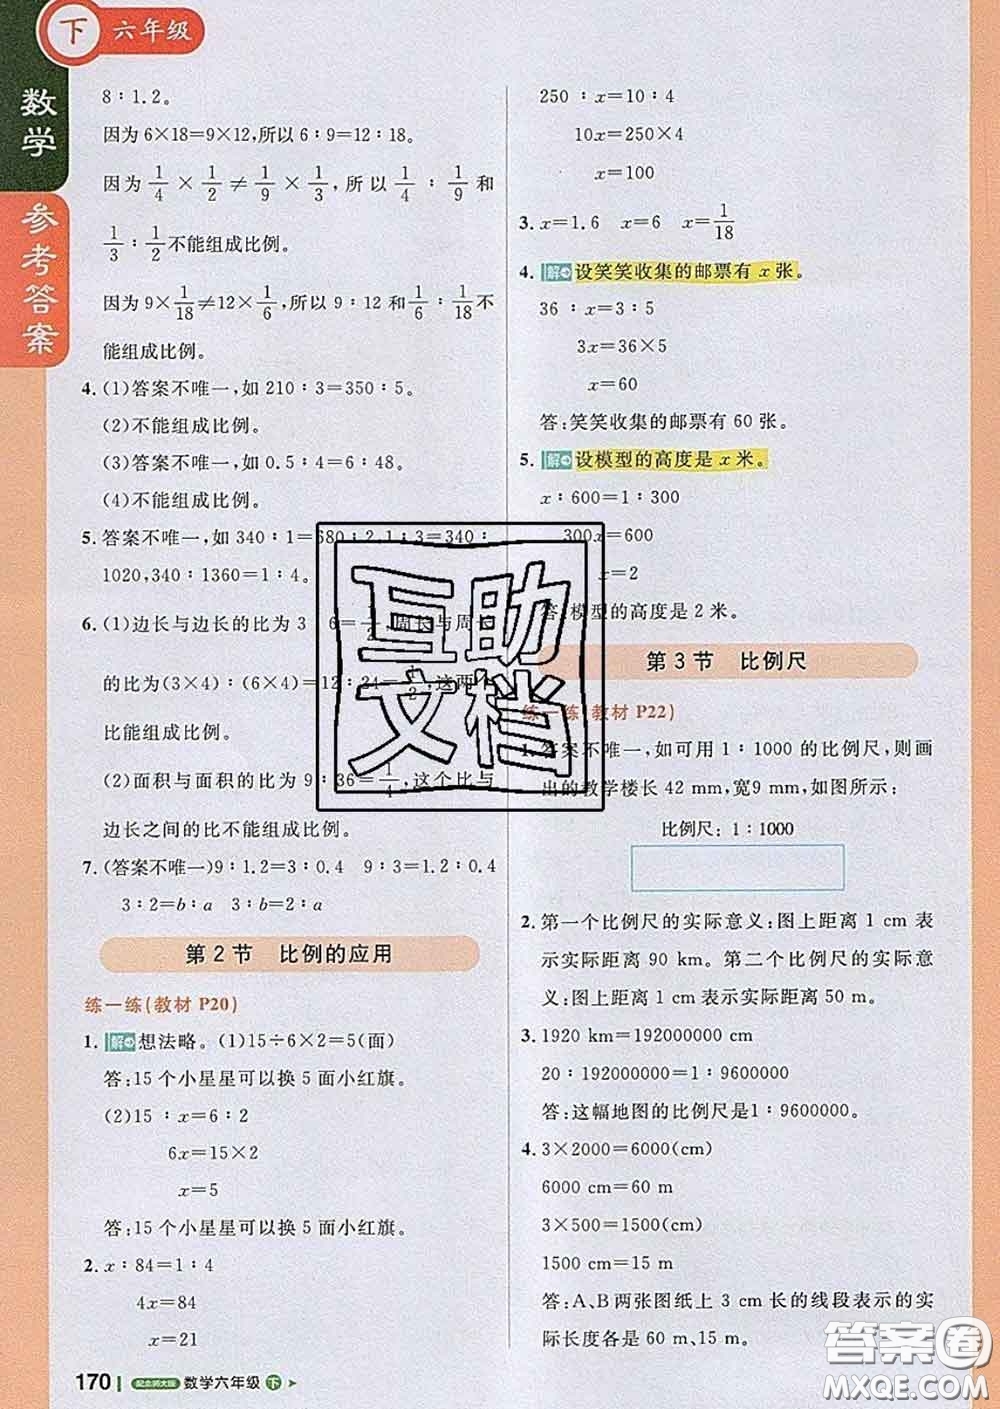 下 六年级
数学
参考答案
8∶1.2。
因为6×18=9×12,所以6∶9=12∶18。
因为1/4×1/2≠1/9×1/3,所以1/4∶1/9和
1/3∶1/2不能组成比例。
因为9×1/18≠12×1/6,所以9∶12和1/6∶1/18不
能组成比例。
4. (1)答案不唯一,如210∶3=350∶5。
(2)不能组成比例。
(3)答案不唯一,如0.5∶4=6∶48。
(4)不能组成比例。
5. 答案不唯一,如340∶1=680∶2,1∶3=340∶
1020,340∶1360=1∶4。
6. (1)边长与边长的比为3 6=1/2,周长与周长
的比为(3×4)∶(6×4)=12∶24=1/2,这两个
比能组成比例。
(2)面积与面积的比为9∶36=1/4,这个比与
边长之间的比不能组成比例。
7. (答案不唯一)9∶1.2=3∶0.4 9∶3=1.2∶0.4
3∶2=b∶a 3∶b=2∶a
第2节 比例的应用
练一练(教材P20)
1. 解 想法略。(1)15÷6×2=5(面)
答:15个小星星可以换5面小红旗。
(2)15∶x=6∶2
6x=15×2
x=5
答:15个小星星可以换5面小红旗。
2. x∶84=1∶4
4x=84
x=21
250∶x=10∶4
10x=250×4
x=100
3. x=1.6 x=6 x=1/18
4. 解 设笑笑收集的邮票有x张。
36∶x=3∶5
3x=36×5
x=60
答:笑笑收集的邮票有60张。
5. 解 设模型的高度是x米。
x∶600=1∶300
300x=600
x=2
答:模型的高度是2米。
第3节 比例尺
练一练(教材P22)
1. 答案不唯一,如可用1∶1000的比例尺,则画
出的教学楼长42 mm,宽9 mm,如图所示:
比例尺:1∶1000
2. 第一个比例尺的实际意义:图上距离1 cm表
示实际距离90 km。第二个比例尺的实际意
义:图上距离1 cm表示实际距离50 m。
3. 1920 km=192000000 cm
20∶192000000=1∶9600000
答:这幅地图的比例尺是1∶9600000。
4. 3×2000=6000(cm)
6000 cm=60 m
3×500=1500(cm)
1500 cm=15 m
答:A、B两张图纸上3 cm长的线段表示的实
际长度各是60 m、15 m。
互助
文档
答案圈
MXQE.COM
170 配北师大版 数学六年级 下